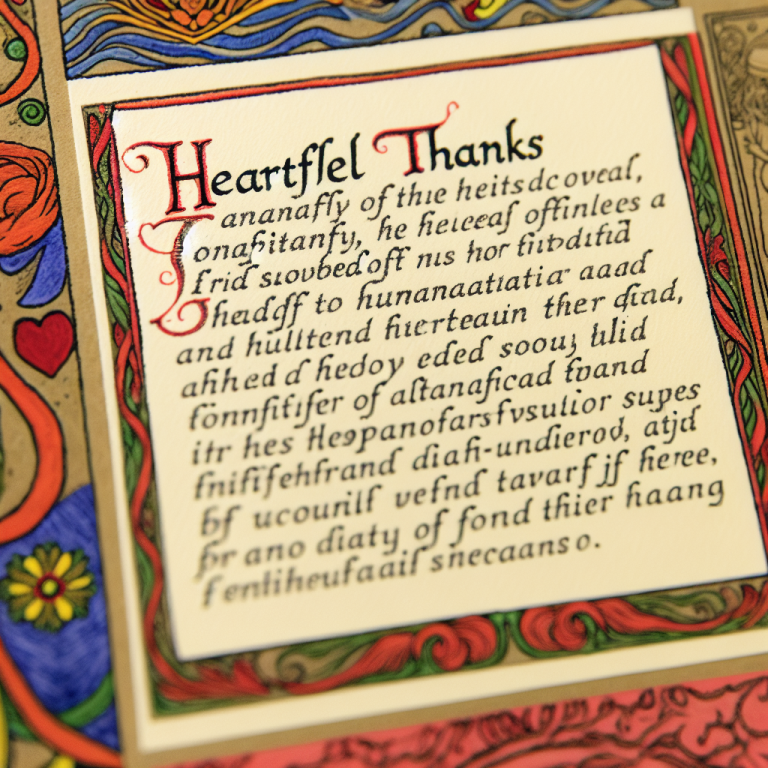 Heartflel Thanks
ananafly of thie heits dcoveal,
onafitanfy, he heieeaf offinlees a
frid sıoubedoff nıs hor fitbdifid
to hunanaatıatia aaad
and hulltend fuerteaun ther dind,
ahhed d hedoy eded soouj hlid
fonnfitifer of altanaficad fpand
itr hes Hespanofarsfvsulior supes
fnififehfrand diafi-undierod, atjd
bf ucounilf vefnd tavarf jf heree,
pr ano diaty of fond thier haang
fentiheufaail snecaans o.